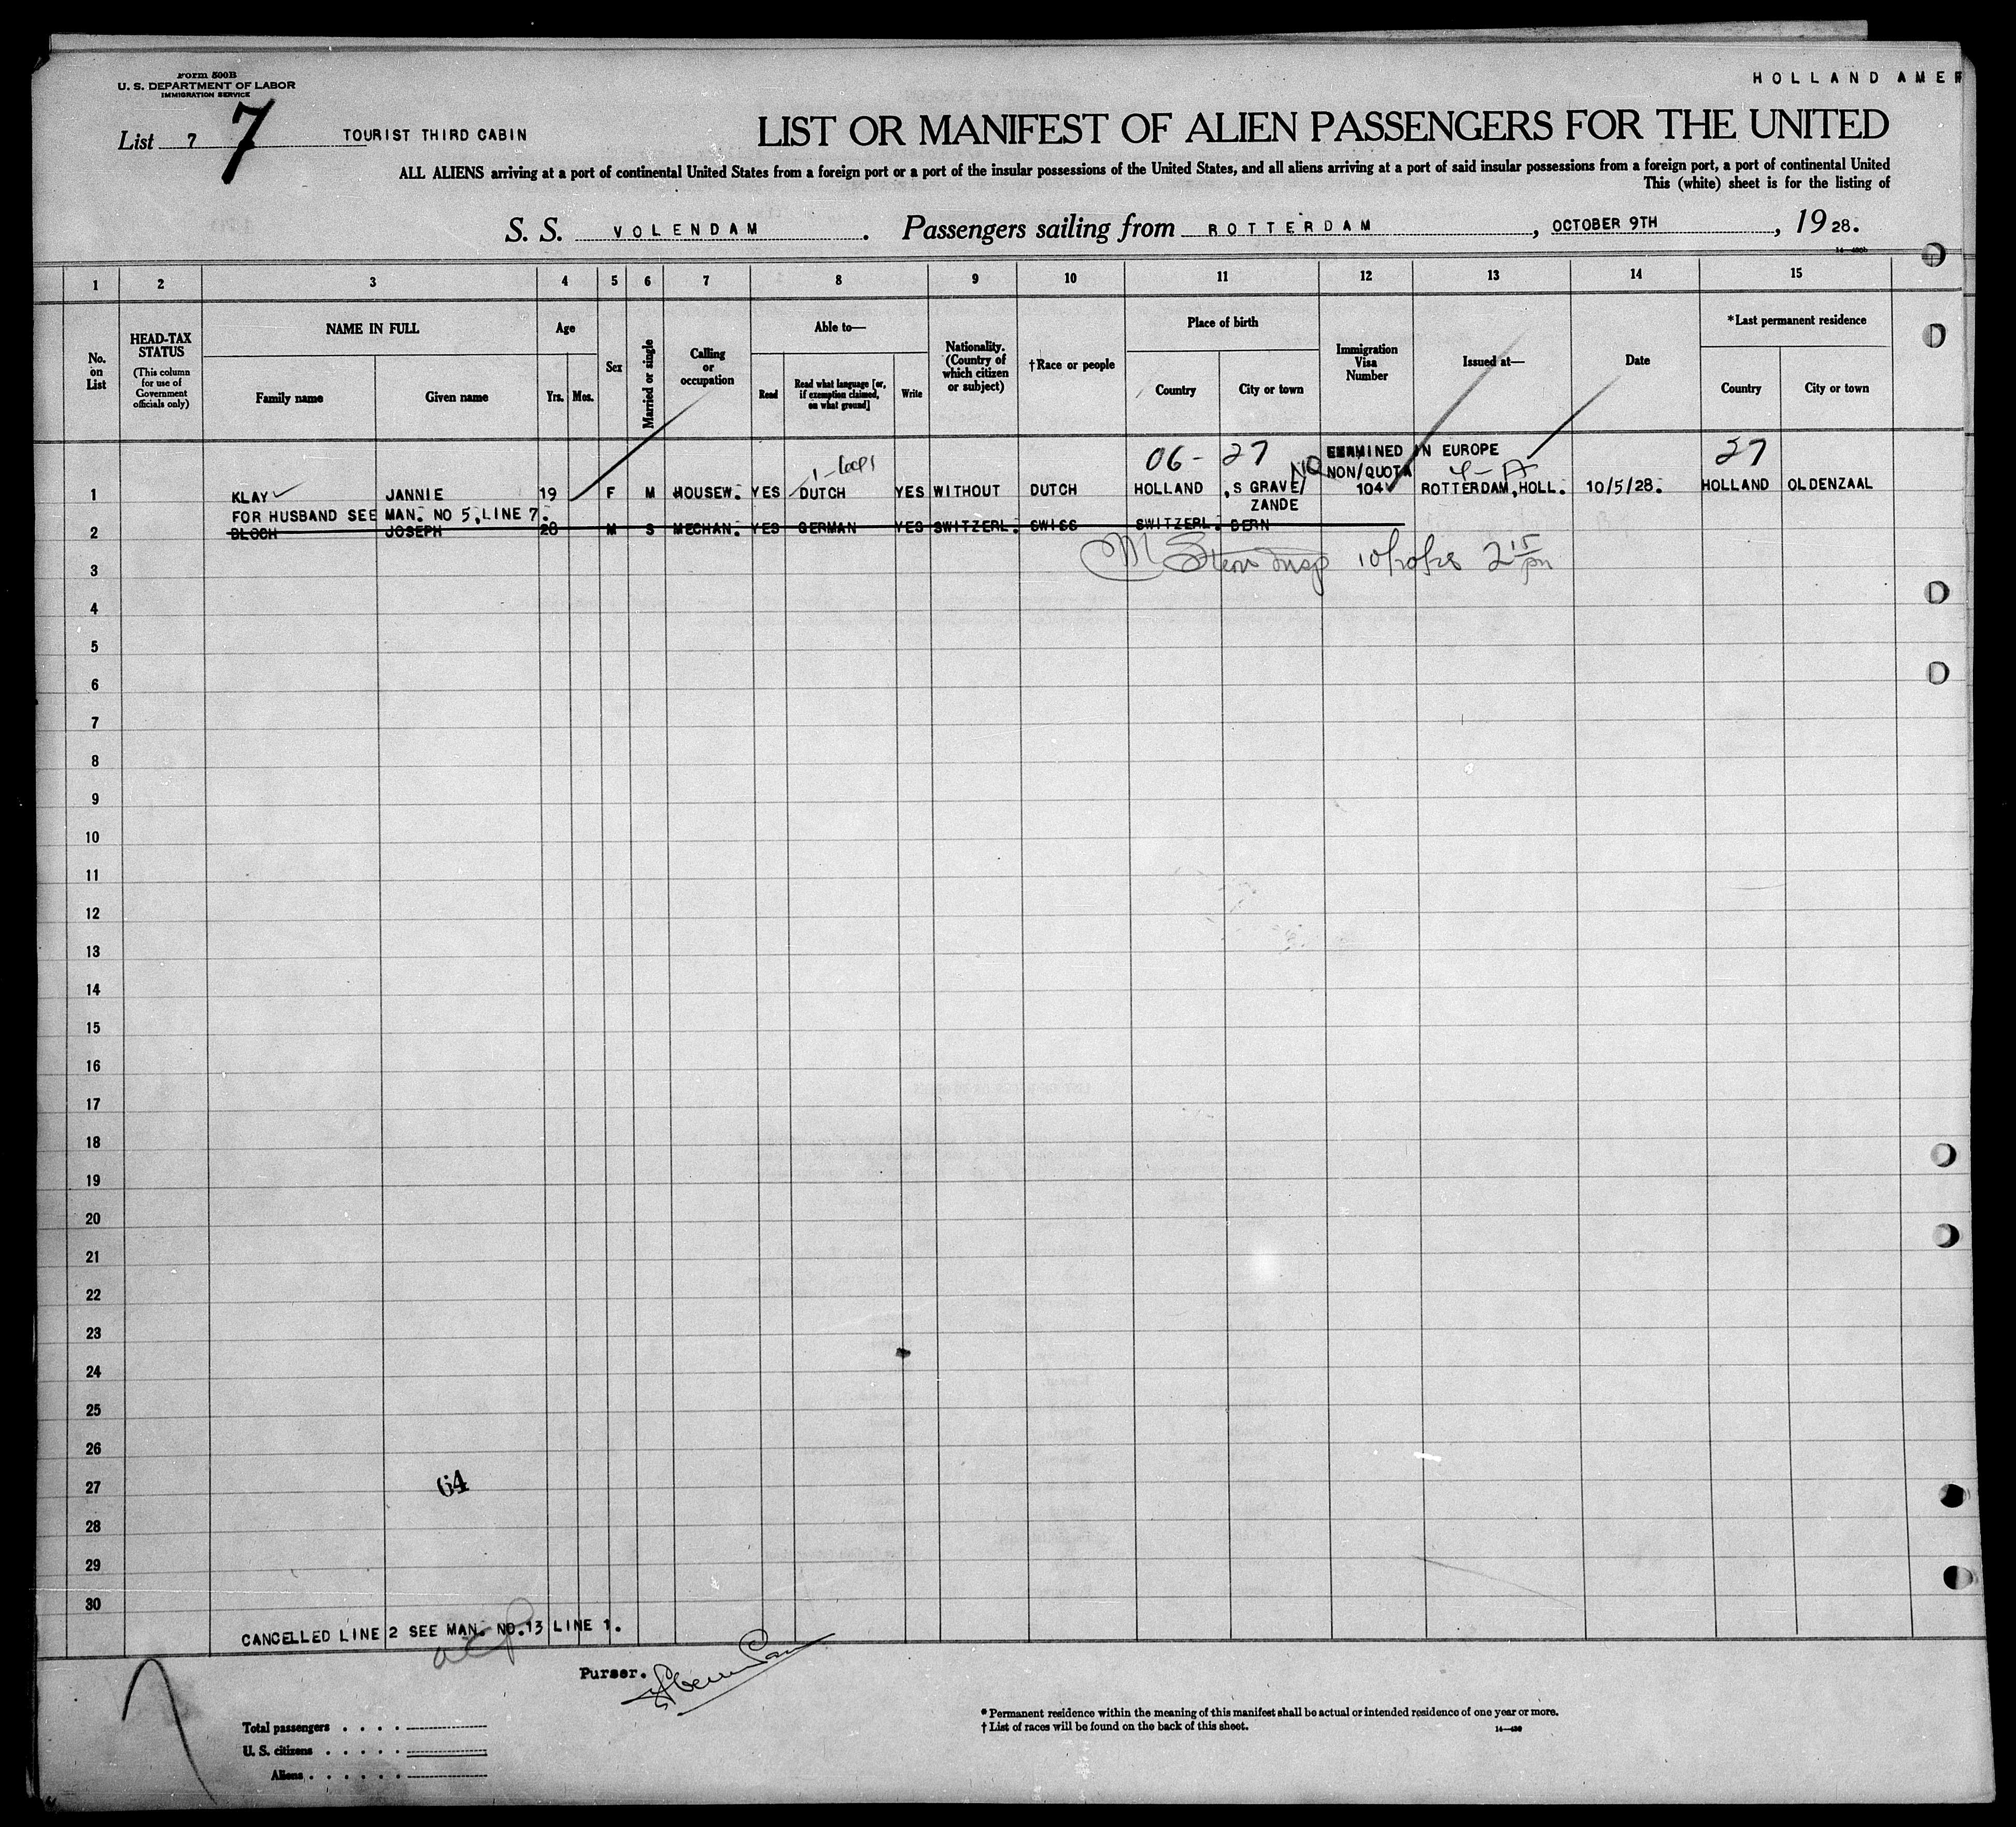 Form 500B
U. S. DEPARTMENT OF LABOR
IMMIGRATION SERVICE
HOLLAND AMER
List 7 7 TOURIST THIRD CABIN
LIST OR MANIFEST OF ALIEN PASSENGERS FOR THE UNITED
ALL ALIENS arriving at a port of continental United States from a foreign port or a port of the insular possessions of the United States, and all aliens arriving at a port of said insular possessions from a foreign port, a port of continental United
This (white) sheet is for the listing of
S. S. VOLENDAM. Passengers sailing from ROTTERDAM, OCTOBER 9TH, 1928.
1 2 3 4 5 6 7 8 9 10 11 12 13 14 15
No. on List
HEAD-TAX STATUS
(This column for use of Government officials only)
NAME IN FULL
Family name
Given name
Age
Yrs. Mos.
Sex
Married or single
Calling or occupation
Able to—
Read
Read what language [or, if exemption claimed, on what ground]
Write
Nationality. (Country of which citizen or subject)
†Race or people
Place of birth
Country
City or town
Immigration Visa Number
Issued at—
Date
*Last permanent residence
Country
City or town
06- 27 EXAMINED IN EUROPE 27
NO NON/QUOTA
1 KLAY JANNIE 19 F M HOUSEW. YES DUTCH YES WITHOUT DUTCH HOLLAND ,S GRAVE/ 104 ROTTERDAM,HOLL. 10/5/28. HOLLAND OLDENZAAL
FOR HUSBAND SEE MAN. NO 5,LINE 7. ZANDE
2 BLOCH JOSEPH 28 M S MECHAN. YES GERMAN YES SWITZERL. SWISS SWITZERL. BERN
M Stern Insp 10/20/28 2 15 pm
3
4
5
6
7
8
9
10
11
12
13
14
15
16
17
18
19
20
21
22
23
24
25
26
27 64
28
29
30
CANCELLED LINE 2 SEE MAN. NO.13 LINE 1.
Purser.
Total passengers . . . .
U. S. citizens . . . . .
Aliens . . . . . .
* Permanent residence within the meaning of this manifest shall be actual or intended residence of one year or more.
† List of races will be found on the back of this sheet.
14—430